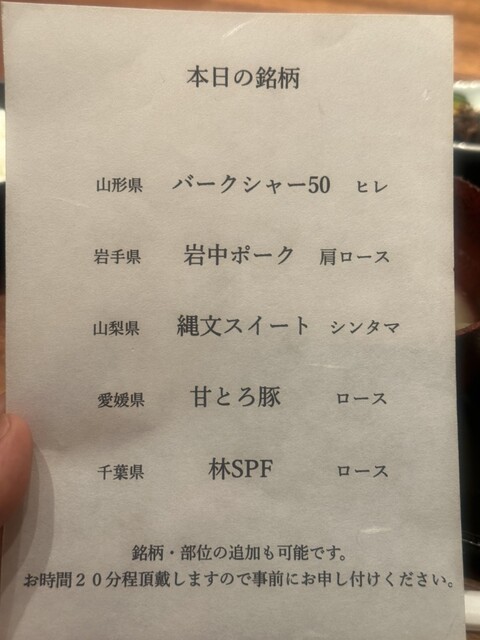 本日の銘柄
山形県 バークシャー50 ヒレ
岩手県 岩中ポーク 肩ロース
山梨県 縄文スイート シンタマ
愛媛県 甘とろ豚 ロース
千葉県 林SPF ロース
銘柄・部位の追加も可能です。
お時間２０分程頂戴しますので事前にお申し付けください。